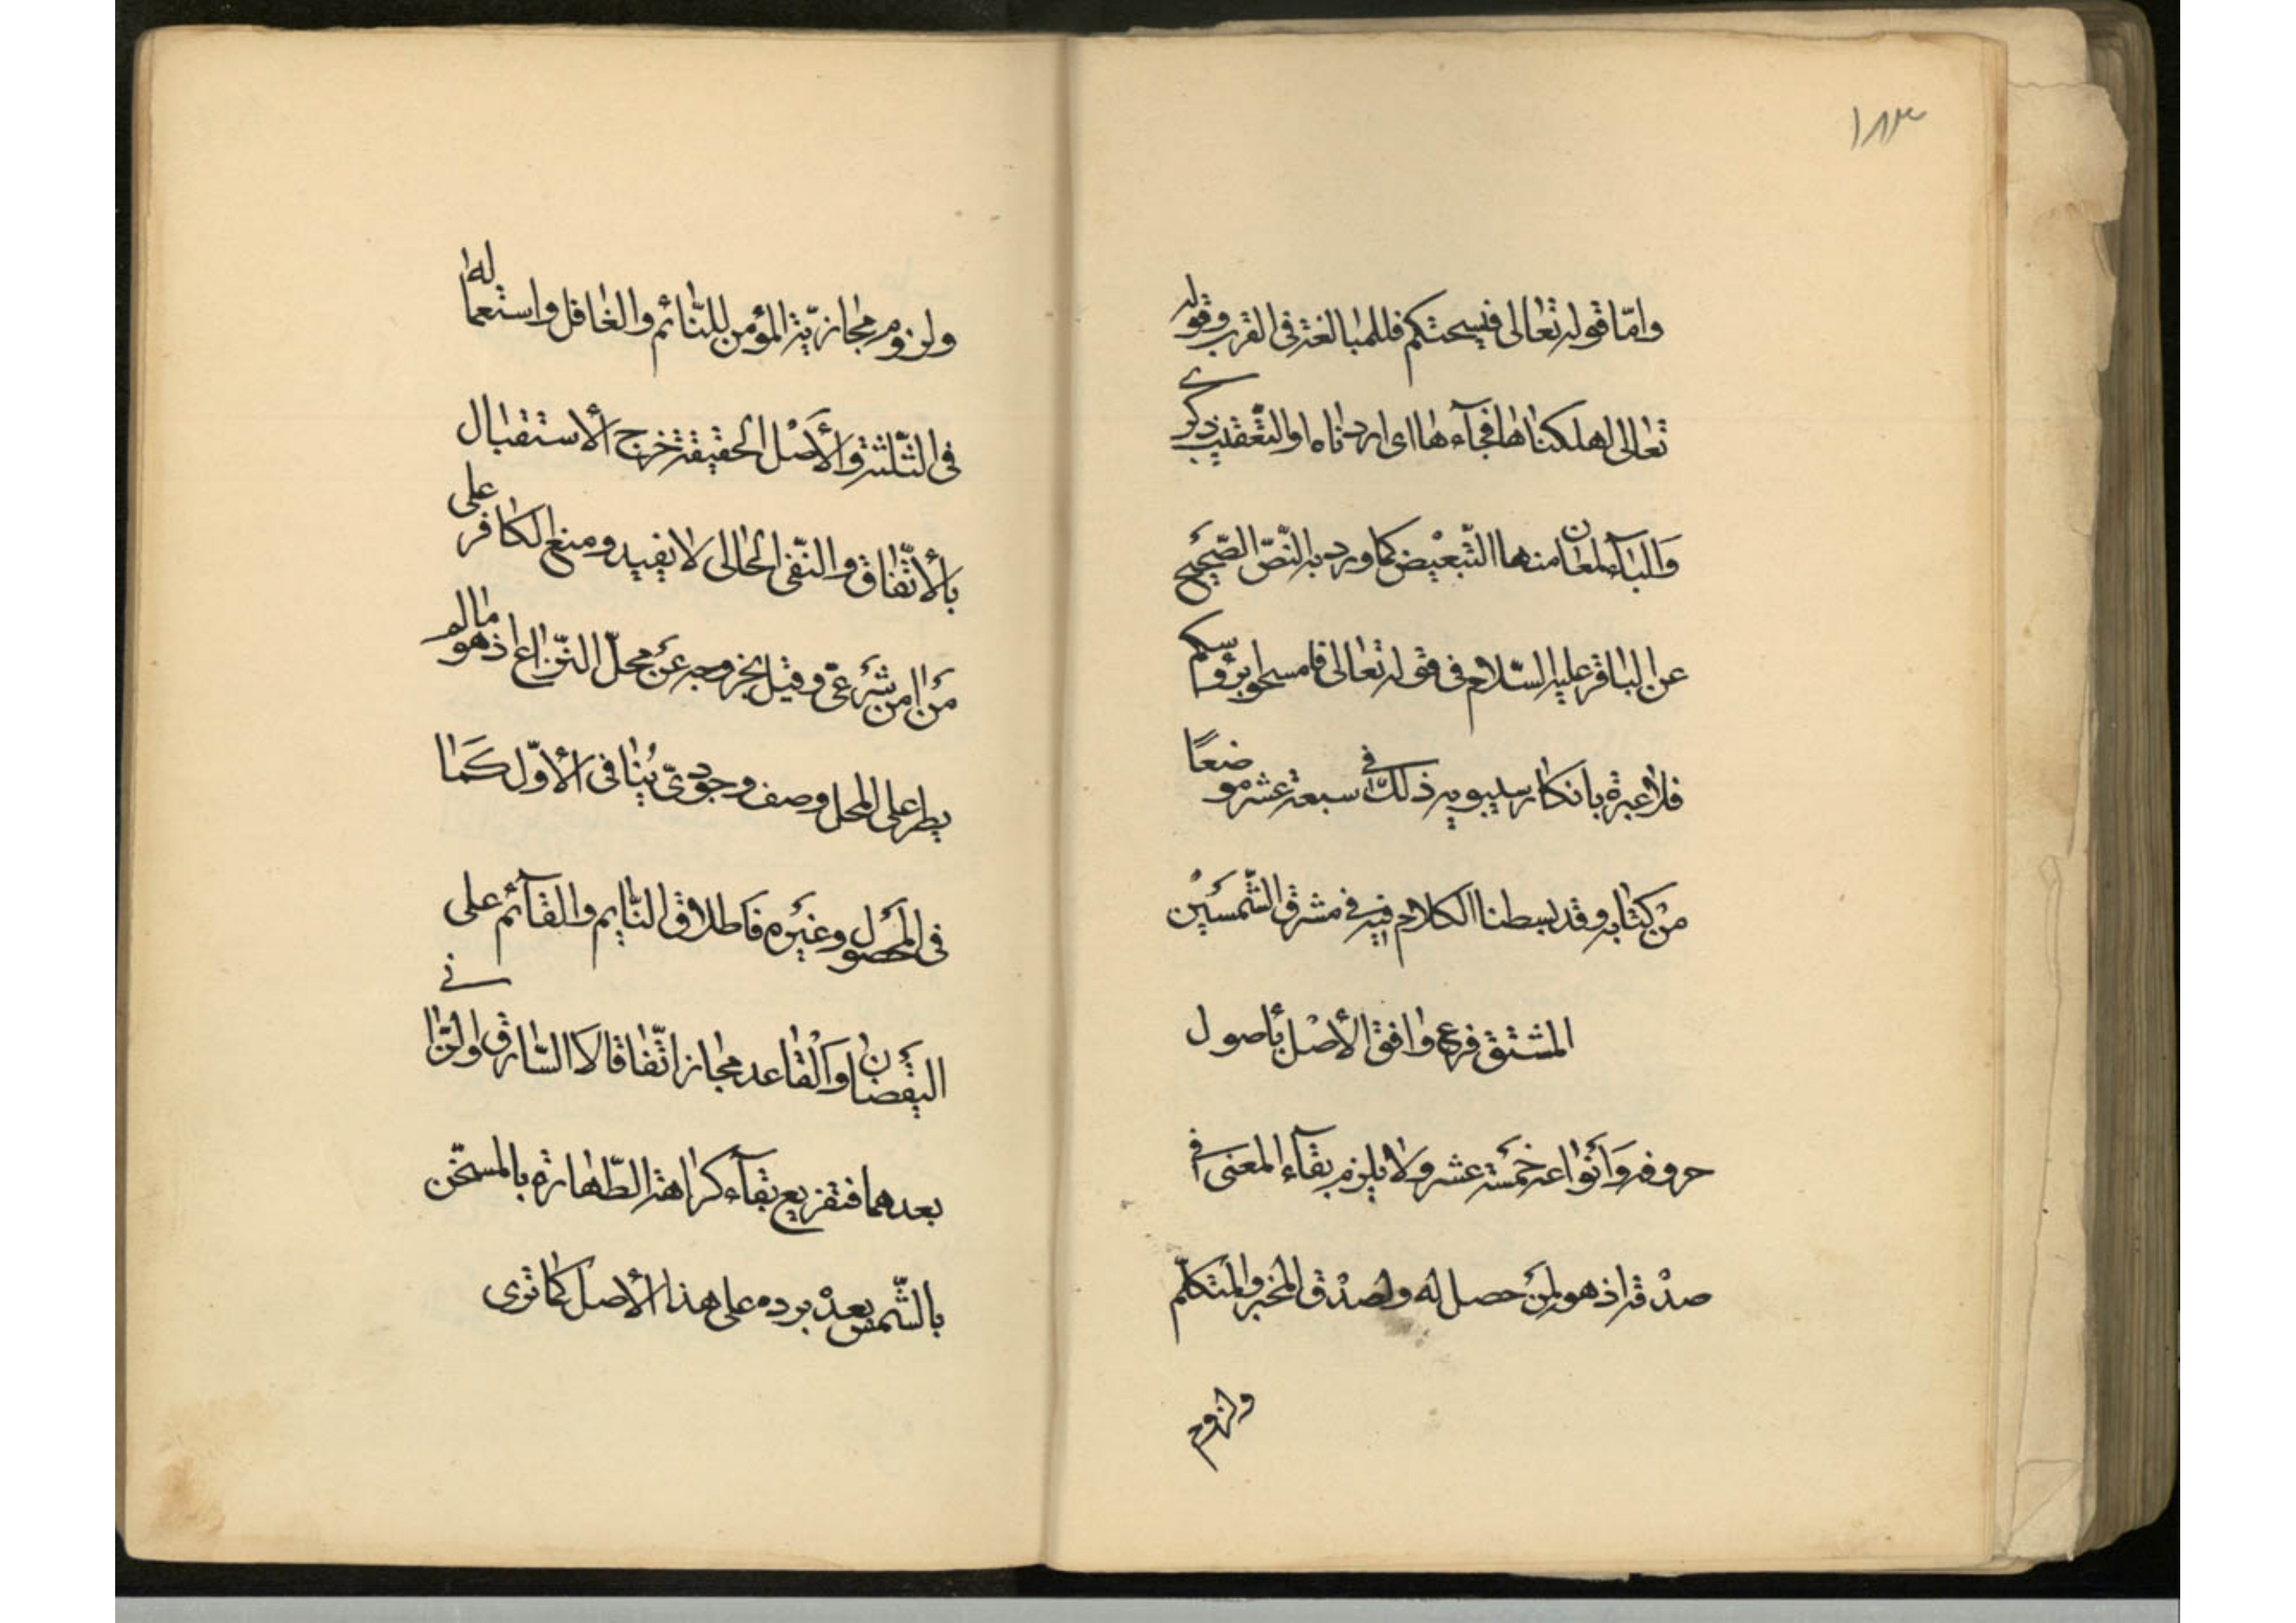 ١٨٣
وامّا قوله تعالى فيسحتكم فللمبالغة في القرب وقوله
تعالى اهلكناها فجآءها اى اردناه او التّعقيب ذكرى
وَالبآء لمعان منها التّبعيض كما ورد به النّصّ الصّحيح
عن الباقر عليه السّلام فى قوله تعالى فامسحوا برؤسكم
فلا عبرة بانكار سيبويه ذلك في سبعة عشر موضعًا
من كتابه وقد بسطنا الكلام فيه في مشرق الشّمسَيْن
المشتق فرع وافق الأصْل بأصول
حروفه وَأنواعه خمسَة عشر ولا يلزم بقآء المعنى في
صدْقه اذ هو لمن حصل له ولصدْق المخبر والمتكلّم
ولزوم
ولزوم مجازيّة المؤمن للنّائم والغافل واستعماله
فى الثّلثة والأَصْل الحقيقة خرج الأستقبال
بالأتّفاق والنّفى الحالى لا يفيد ومنع الكافر على
مَن امن شَرعىّ وقيل بخروجه عَن محلّ النّزاع اذ هو ما لم
يطر على المحل وصف وجودىّ يُنافى الأوّل كَمَا
فى المحصَول وغيَره فَاطلاق النّايم والقآئم على
اليقضان وَالْقاعد مجاز اتّفاقا لا كالسّارق والزّانى
بعدهما فتفريع بقآء كراهة الطّهارة بالمسخّن
بالشّمس بعدْ برده على هذا الأصل كما ترى